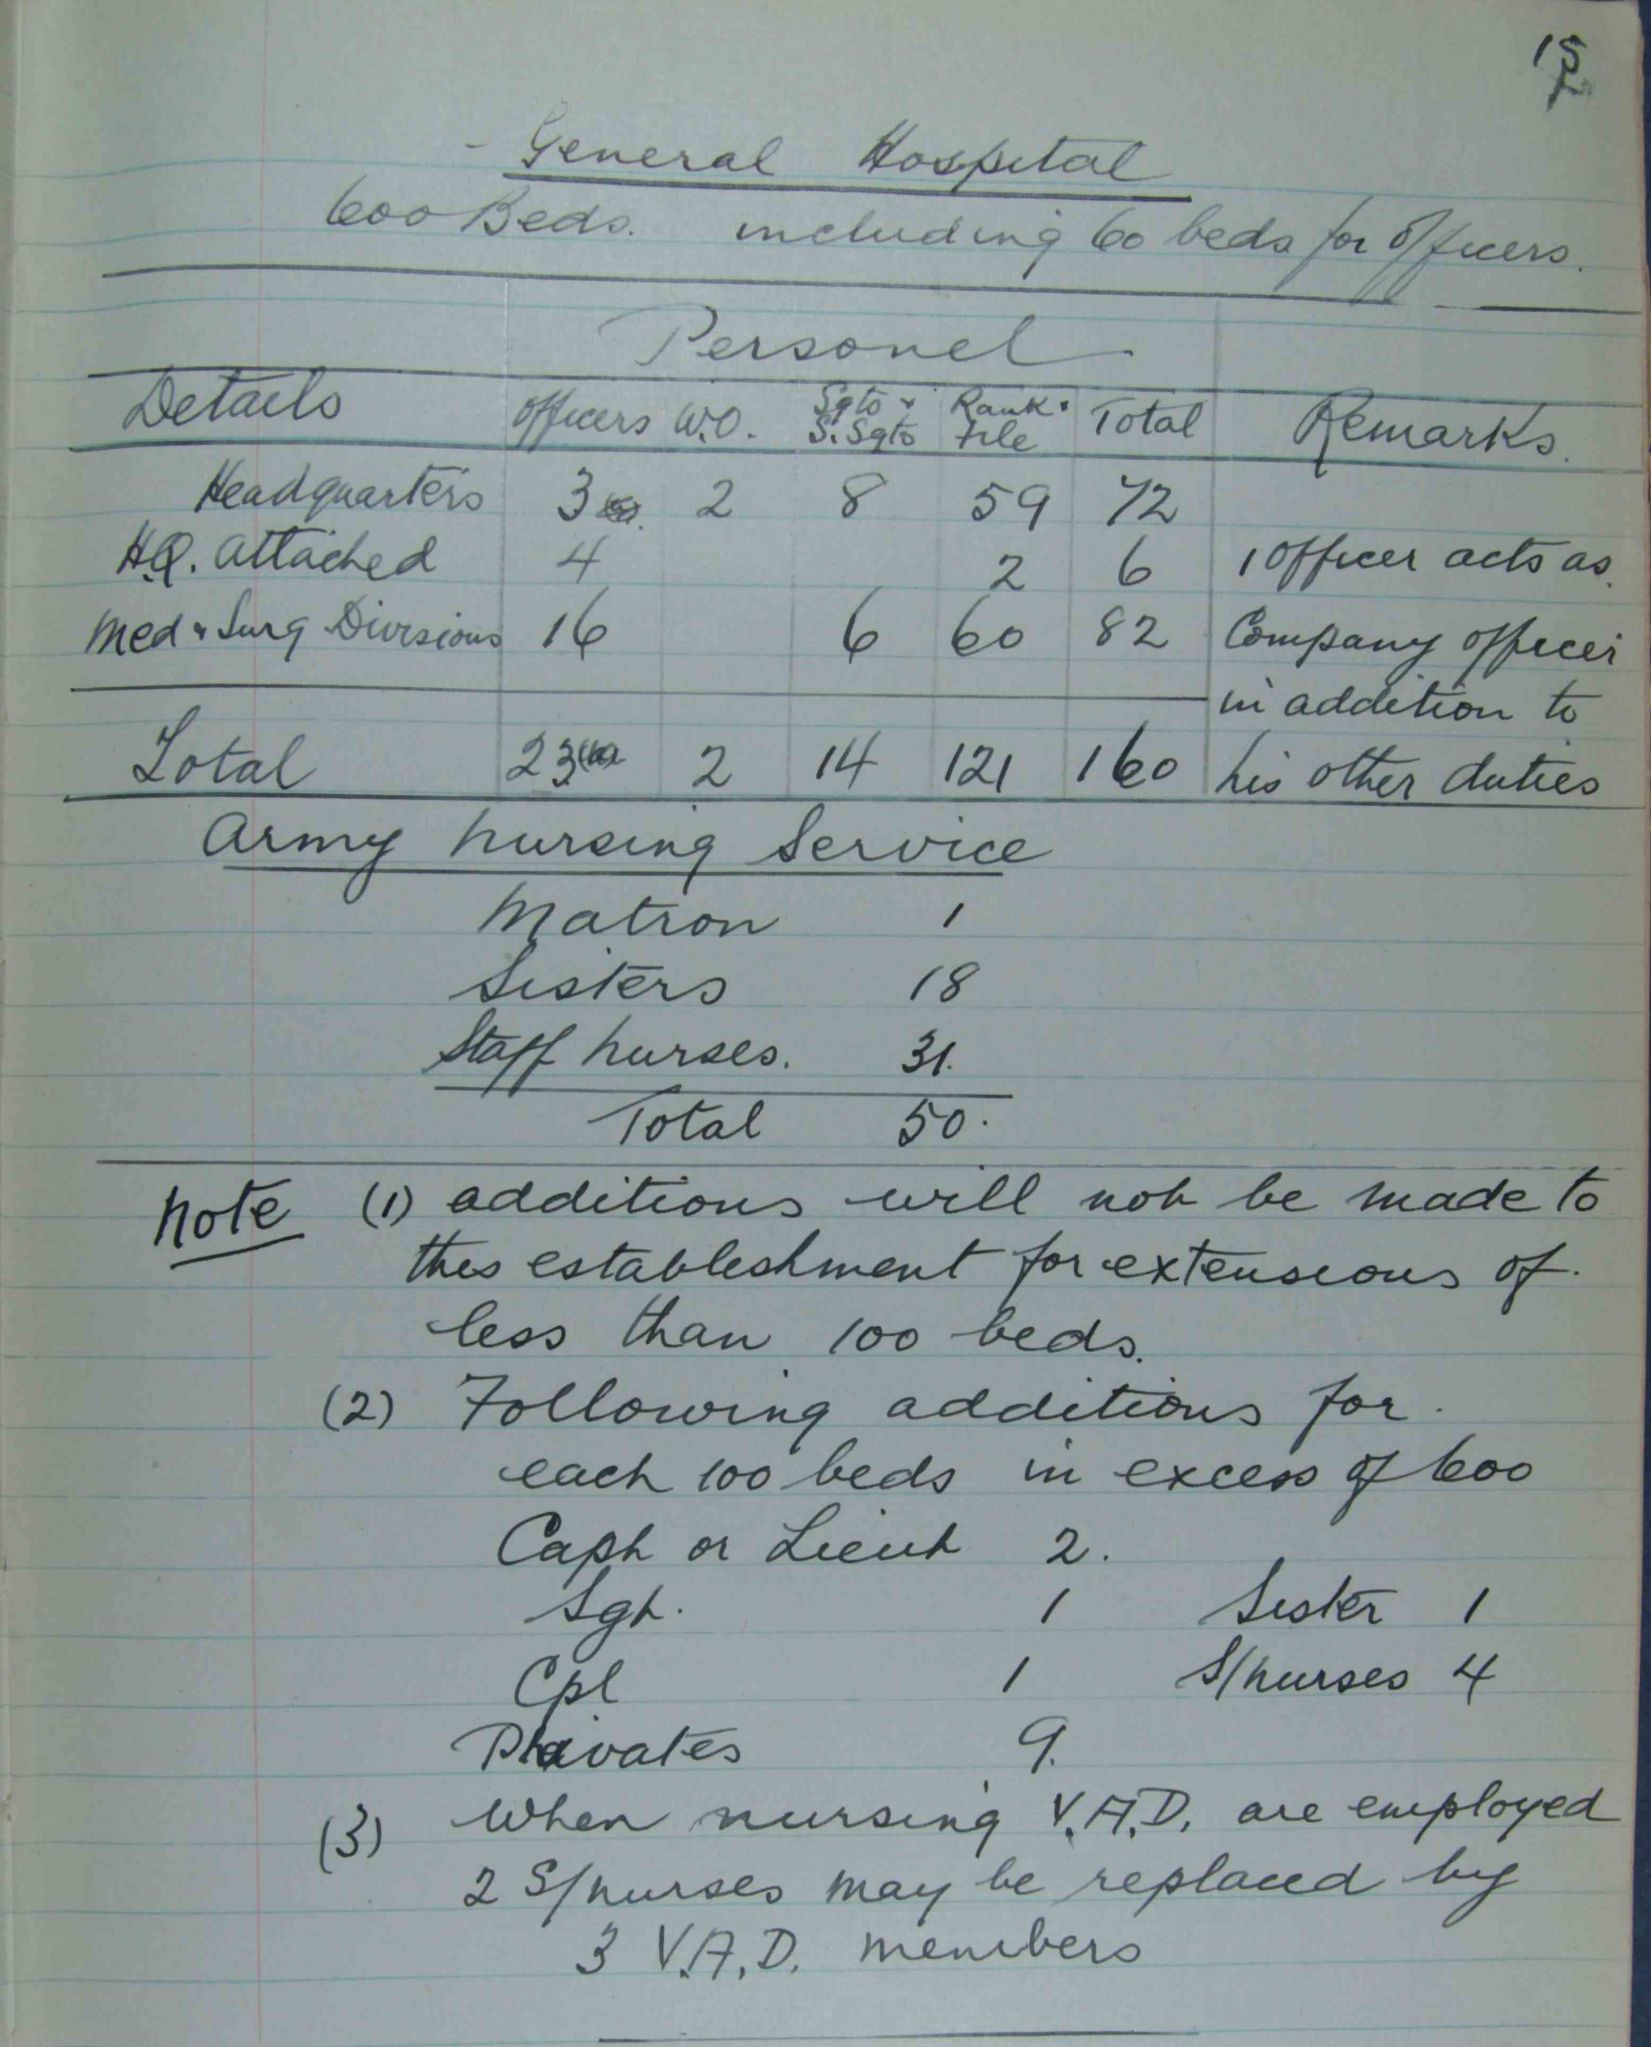 15
- General Hospital
600 Beds. including 60 beds for Officers.
Personel
Details Officers W.O. Sgts & S. Sgts Rank & File Total Remarks.
Headquarters 3 (a). 2 8 59 72
H.Q. attached 4 2 6 1 Officer acts as
Med & Surg Divisions 16 6 60 82 Company officer
in addition to
Total 23 (a) 2 14 121 160 his other duties
Army Nursing Service
Matron 1
Sisters 18
Staff Nurses. 31.
Total 50.
Note (1) additions will not be made to
this establishment for extensions of
less than 100 beds.
(2) Following additions for
each 100 beds in excess of 600
Capt or Lieut 2.
Sgt. 1 Sister 1
Cpl 1 S/nurses 4
Privates 9.
(3) When nursing V.A.D. are employed
2 S/nurses may be replaced by
3 V.A.D. members